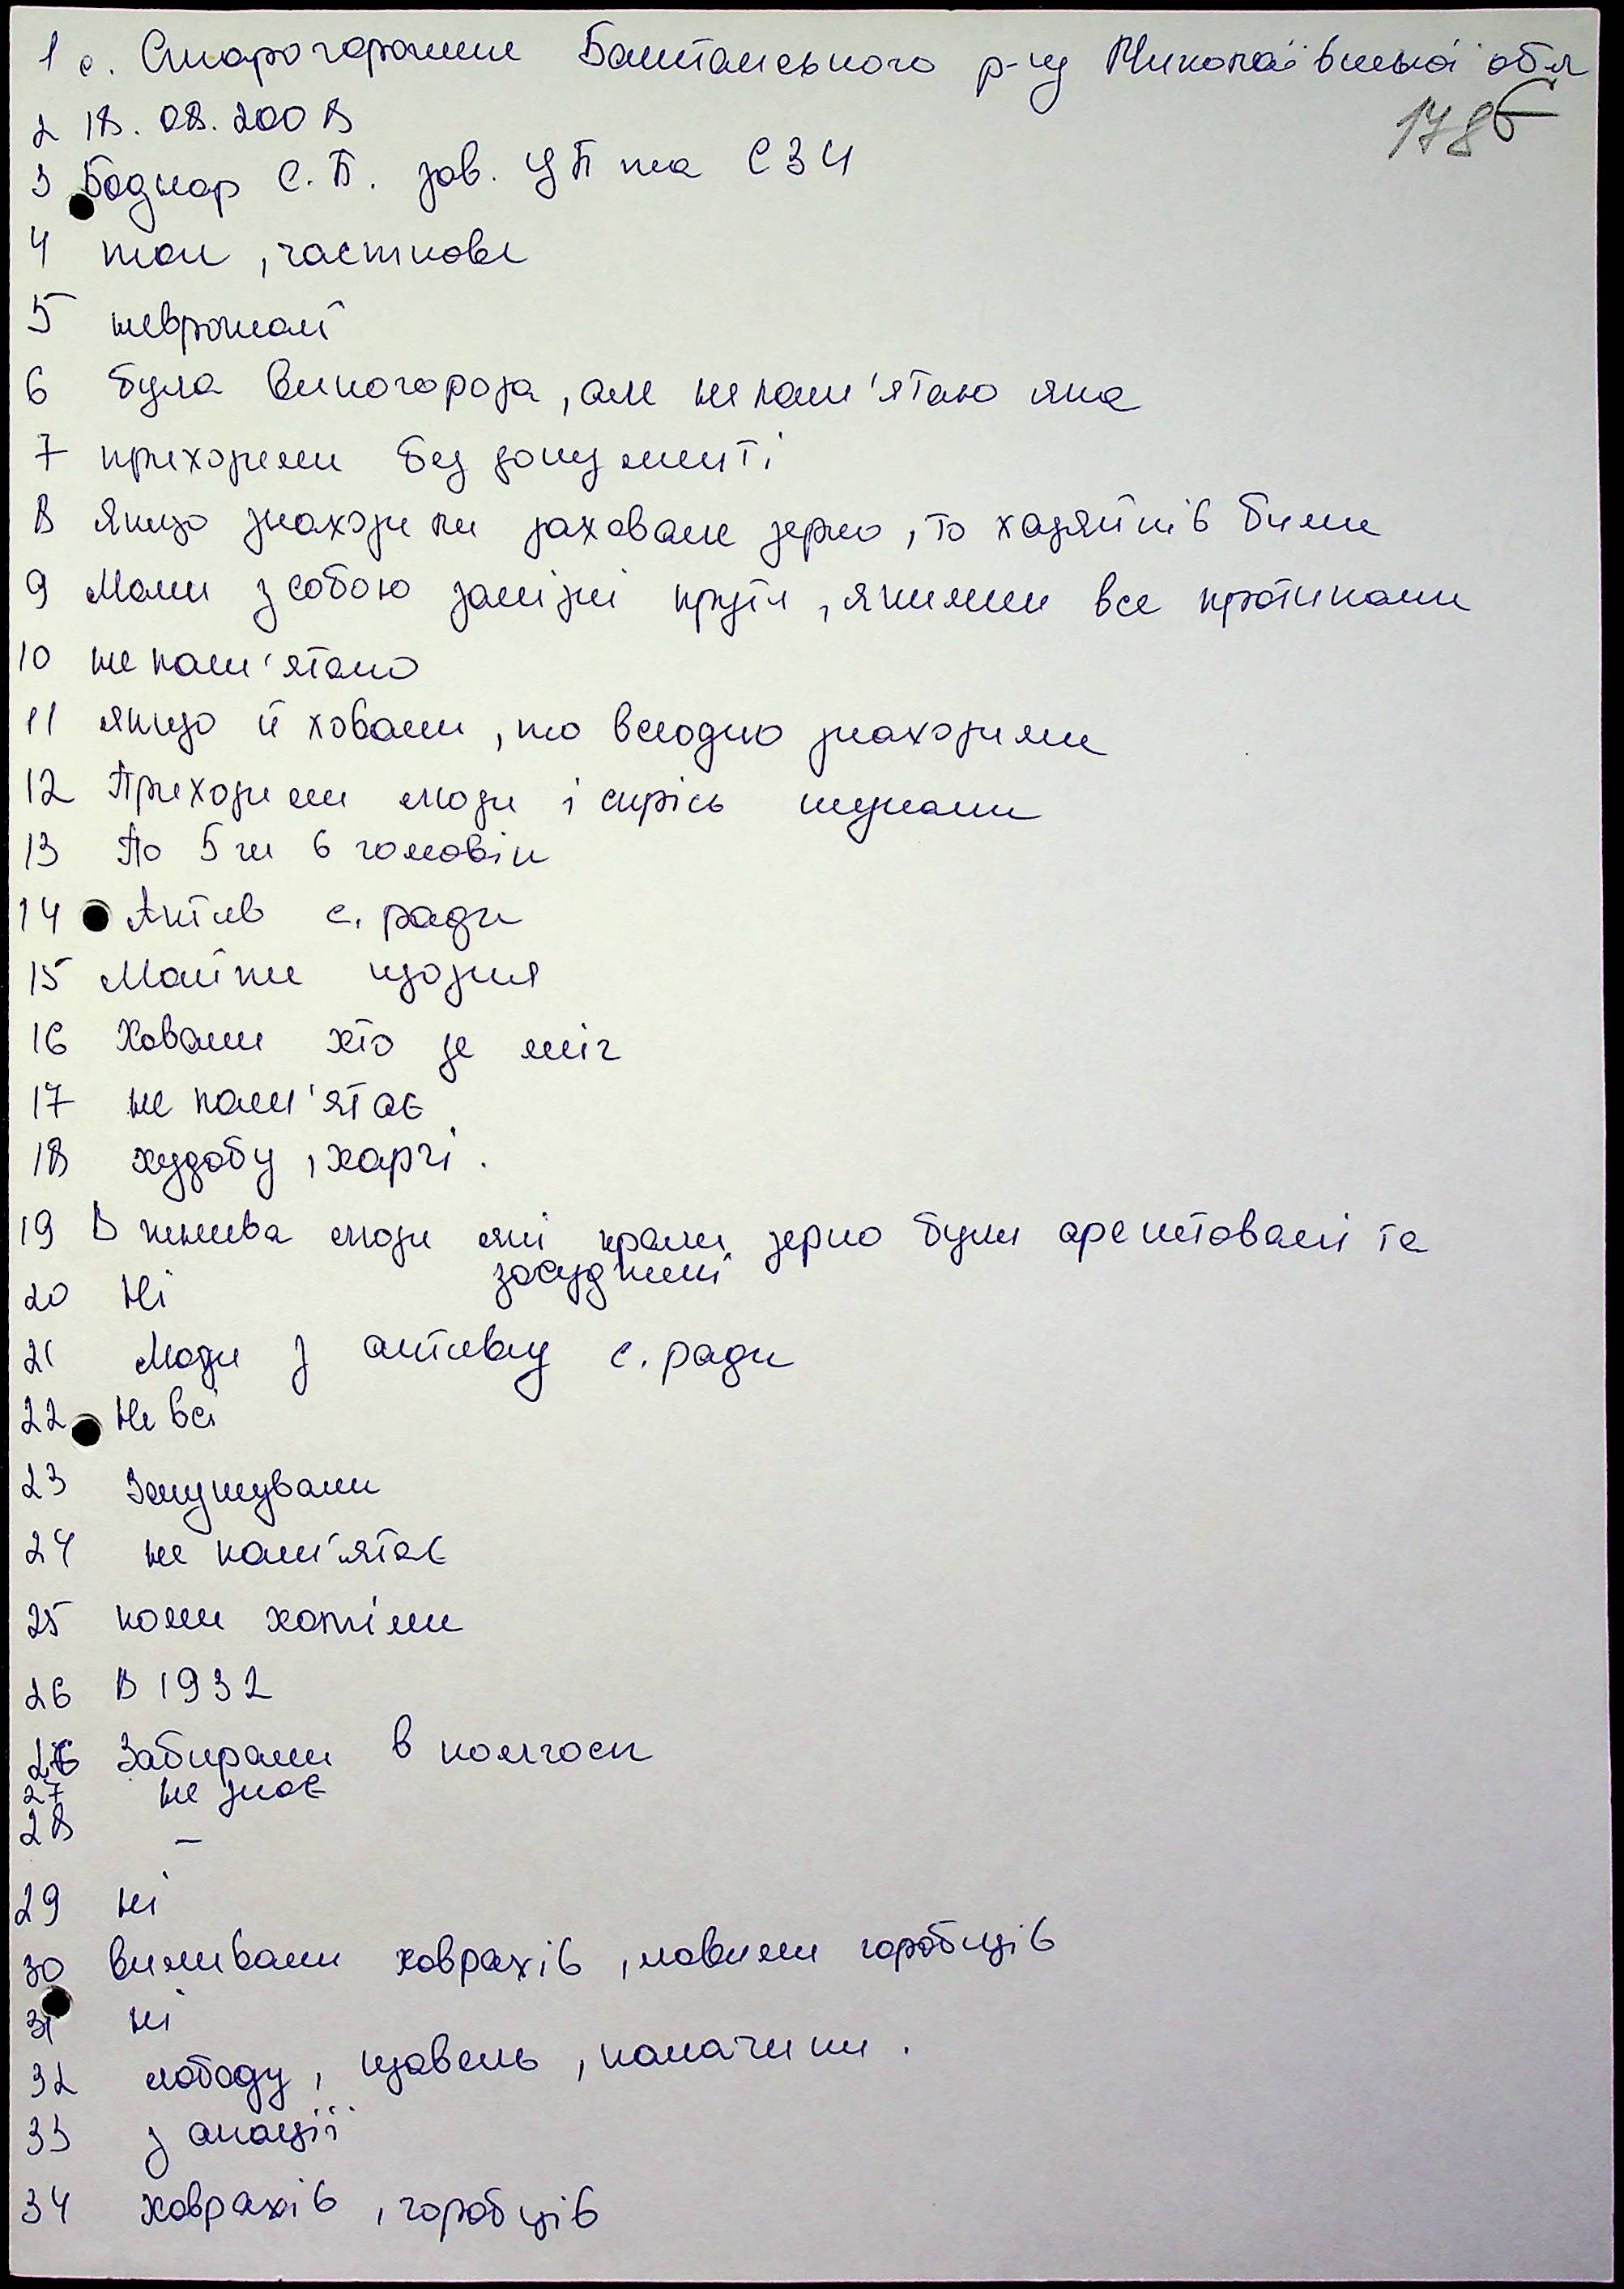 1 с. Старогорожене Баштанського р-ну Миколаївської обл
178б
2 18.08.2008
3 Боднар С.Б. зав. ЦБ та СЗЧ
4 так, часткове
5 неврожаї
6 була виногорода, але не пам'ятаю яка
7 приходили без документі
8 Якщо знаходили заховане зерно, то хазяйнів били
9 Мали з собою залізні прути, якими все протикали
10 не пам'ятаю
11 якщо й ховали, то всеодно знаходили
12 Приходили люди і скрізь шукали
13 По 5 чи 6 чоловік
14 Актив с. ради
15 Майже щодня
16 Ховали хто де міг
17 не пам'ятає
18 худобу, харчі.
19 В жнива люди які крали зерно були арештовані та
засуджені
20 Ні
21 Люди з активу с. ради
22 Не всі
23 Змушували
24 не пам'ятає
25 коли хотіли
26 В 1932
26 Забирали в колгосп
27 не знає
28 –
29 ні
30 виливали ховрахів, ловили горобців
31 ні
32 лободу, щавель, калачики.
33 з акації
34 ховрахів, горобців